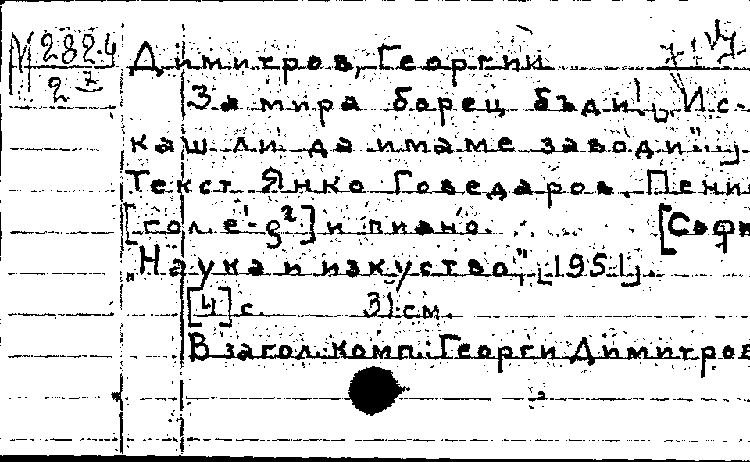 М 282.4
2
Димитров, Георгий
За мира борец бъди! „Ис-
каш ли да имаме заводи"...
Текст Янко Говедаров. Пени
[гол. e'-g²] и пиано. [Софи
„Наука и изкуство", 1951.
[4] с. 31 см.
В загл. комп.: Георги Димитров